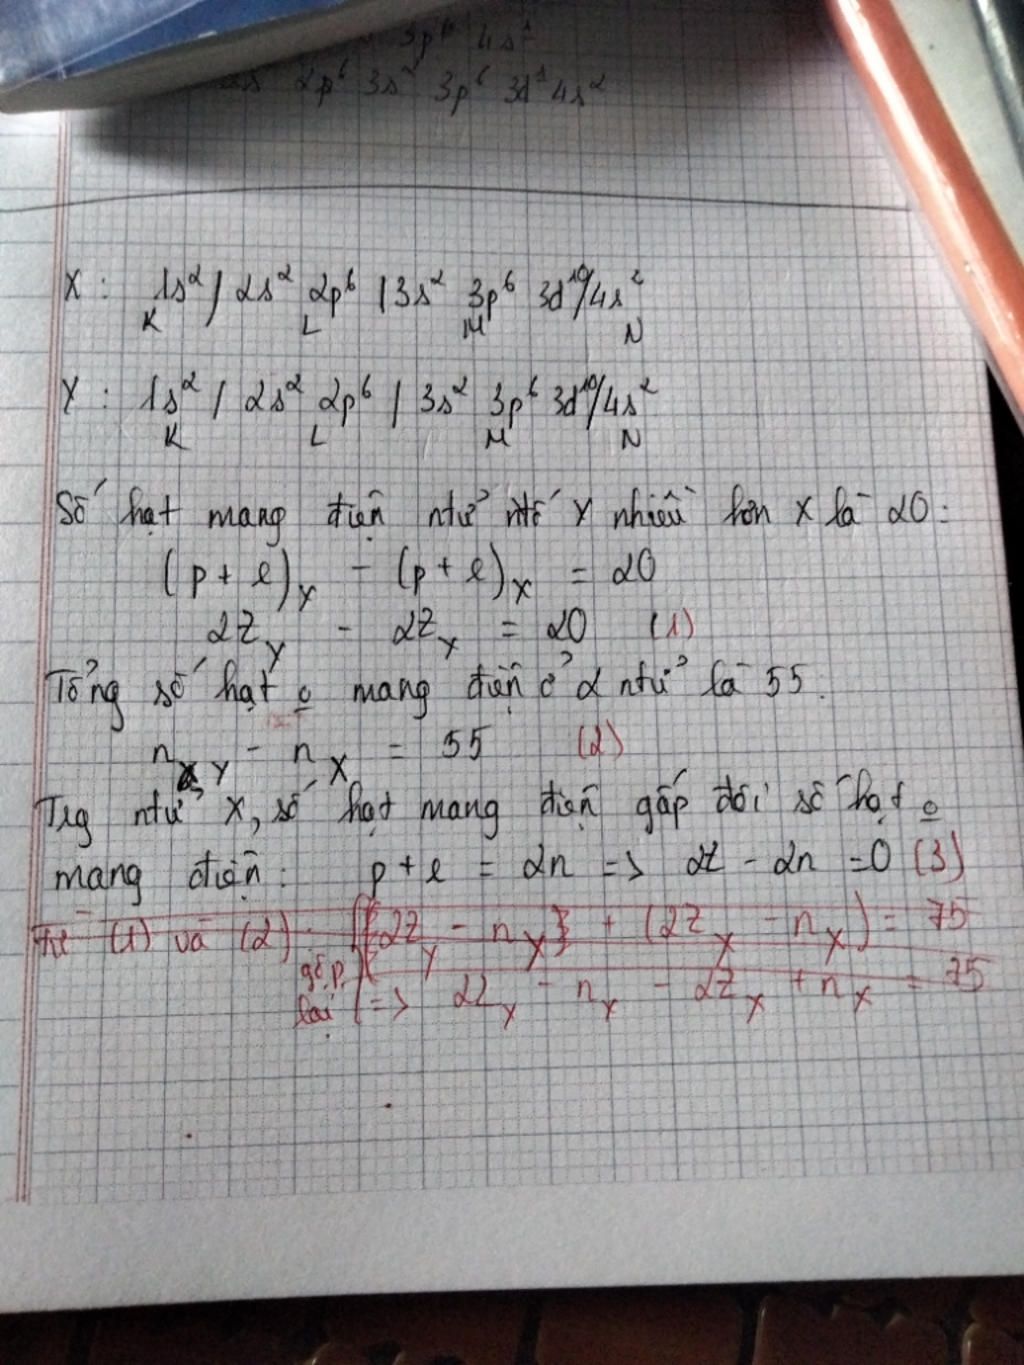 3p⁶ 4s¹
2s² 2p⁶ 3s² 3p⁶ 3d¹ 4s²
X : 1s² / 2s² 2p⁶ / 3s² 3p⁶ 3d¹⁰/4s²
K L M N
Y : 1s² / 2s² 2p⁶ / 3s² 3p⁶ 3d¹⁰/4s²
K L M N
Số hạt mang điện ntử ntố Y nhiều hơn X là 20:
(p + e)Y - (p + e)X = 20
2ZY - 2ZX = 20 (1)
Tổng số hạt o mang điện ở 2 ntử là 55.
nY - nX = 55 (2)
Trg ntử X, số hạt mang điện gấp đôi số hạt o
mang điện: p + e = 2n => 2Z - 2n = 0 (3)
Từ (1) và (2): {(2ZY - nY) + (2ZX - nX) = 75
gộp lại => 2ZY - nY - 2ZX + nX = 75